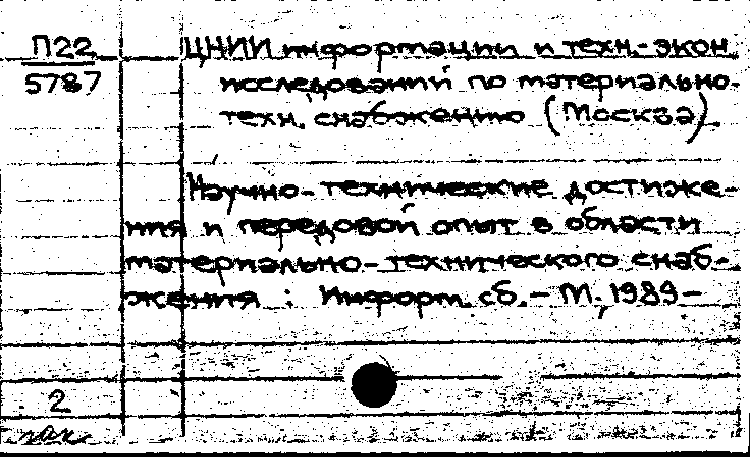 П22
5787
ЦНИИ информации и техн.-экон.
исследований по материально-
техн. снабжению (Москва).
Научно-технические достиже-
ния и передовой опыт в области
материально-технического снаб-
жения : Информ. сб. - М., 1989 -
2
зак